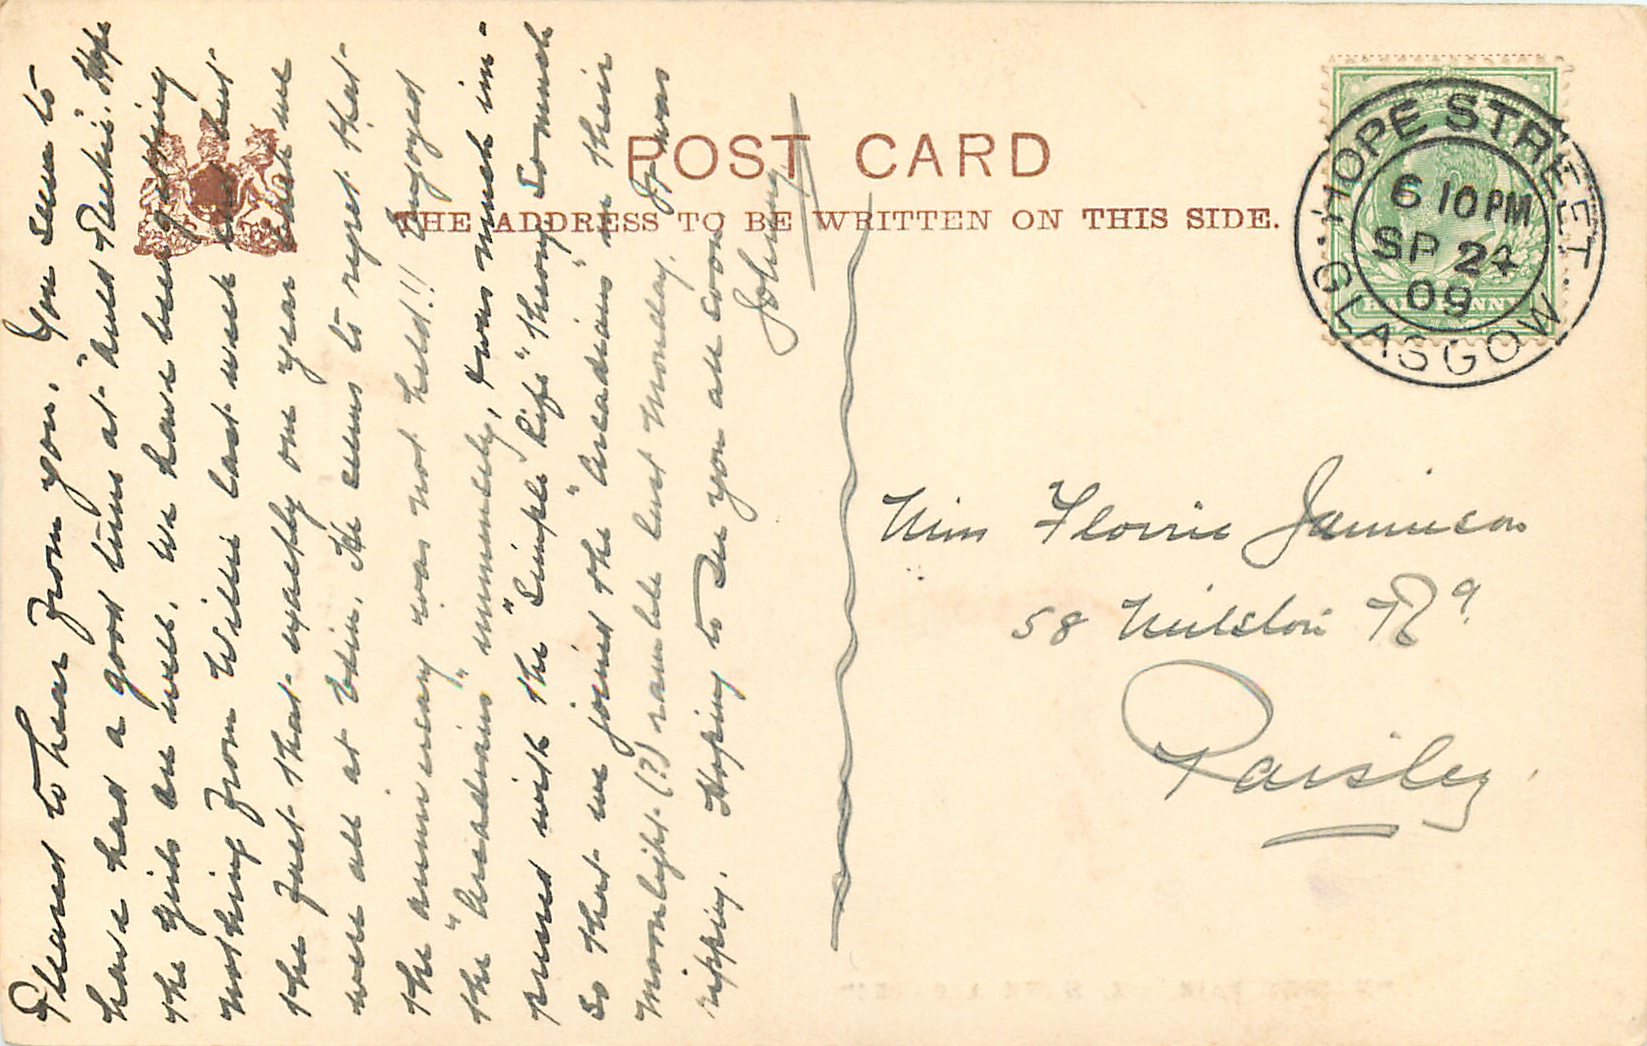 POST CARD
THE ADDRESS TO BE WRITTEN ON THIS SIDE.
HOPE STREET
6 10 PM
SP 24
09
GLASGOW
HALFPENNY
Pleased to hear from you. You seem to
have had a good time at "Auld Reekie". Hope
the girls are well. We have been getting
nothing from Willie last week but
the fact that exactly one year we
were all at . He seems to regret that
the anniversary was not held!! Enjoyed
the "Arcadians" immensely, & was much im-
pressed with the "Simple Life" theory so much
so that we joined the "Arcadians" in their
moonlight (?) ramble last Monday. It was
ripping. Hoping to see you all soon
Johnny
Miss Florrie Jamieson
58 Rd.
Paisley.